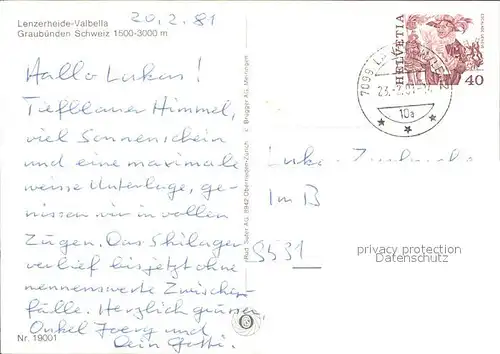 20.2.81
Lenzerheide-Valbella
Graubünden Schweiz 1500-3000 m
Hallo Lukas!
Tiefblauer Himmel,
viel Sonnenschein
und eine maximale
weisse Unterlage, ge-
nissen wir in vollen
Zügen. Das Skilager
verlief bis jetzt ohne
nennenswerte Zwischen-
fälle. Herzlich grüssen
Onkel Joerg und
Dein Götti.
Nr. 19001
8942 Oberrieden-Zürich © Brugger AG, Meiringen
HELVETIA
40
7099
23.
10a
Im B
8531
privacy protection
AnsichtskartenVersand.com